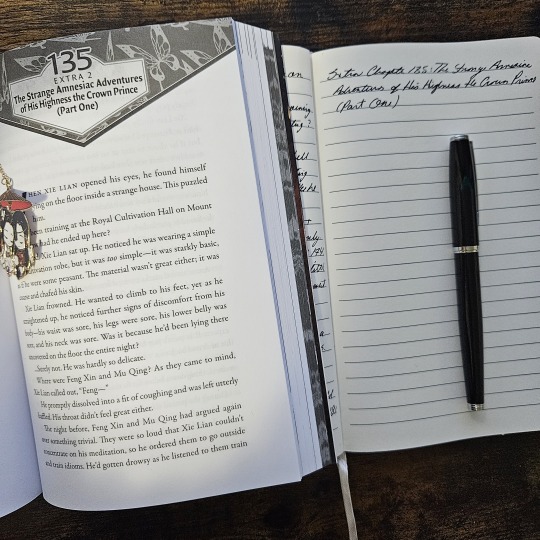 135
EXTRA 2
The Strange Amnesiac Adventures
of His Highness the Crown Prince
(Part One)
HEN XIE LIAN opened his eyes, he found himself
on the floor inside a strange house. This puzzled
him.
been training at the Royal Cultivation Hall on Mount
had he ended up here?
Xie Lian sat up. He noticed he was wearing a simple
cultivation robe, but it was too simple—it was starkly basic,
as if he were some peasant. The material wasn't great either; it was
and chafed his skin.
Xie Lian frowned. He wanted to climb to his feet, yet as he
straightened up, he noticed further signs of discomfort from his
body—his waist was sore, his legs were sore, his lower belly was
sore, and his neck was sore. Was it because he'd been lying there
on the floor the entire night?
...Surely not. He was hardly so delicate.
Where were Feng Xin and Mu Qing? As they came to mind,
Xie Lian called out, "Feng—"
He promptly dissolved into a fit of coughing and was left utterly
baffled. His throat didn't feel great either.
The night before, Feng Xin and Mu Qing had argued again
over something trivial. They were so loud that Xie Lian couldn't
concentrate on his meditation, so he ordered them to go outside
and train idioms. He'd gotten drowsy as he listened to them train
Extra Chapter 135: The Strange Amnesiac
Adventures of His Highness the Crown Prince
(Part One)